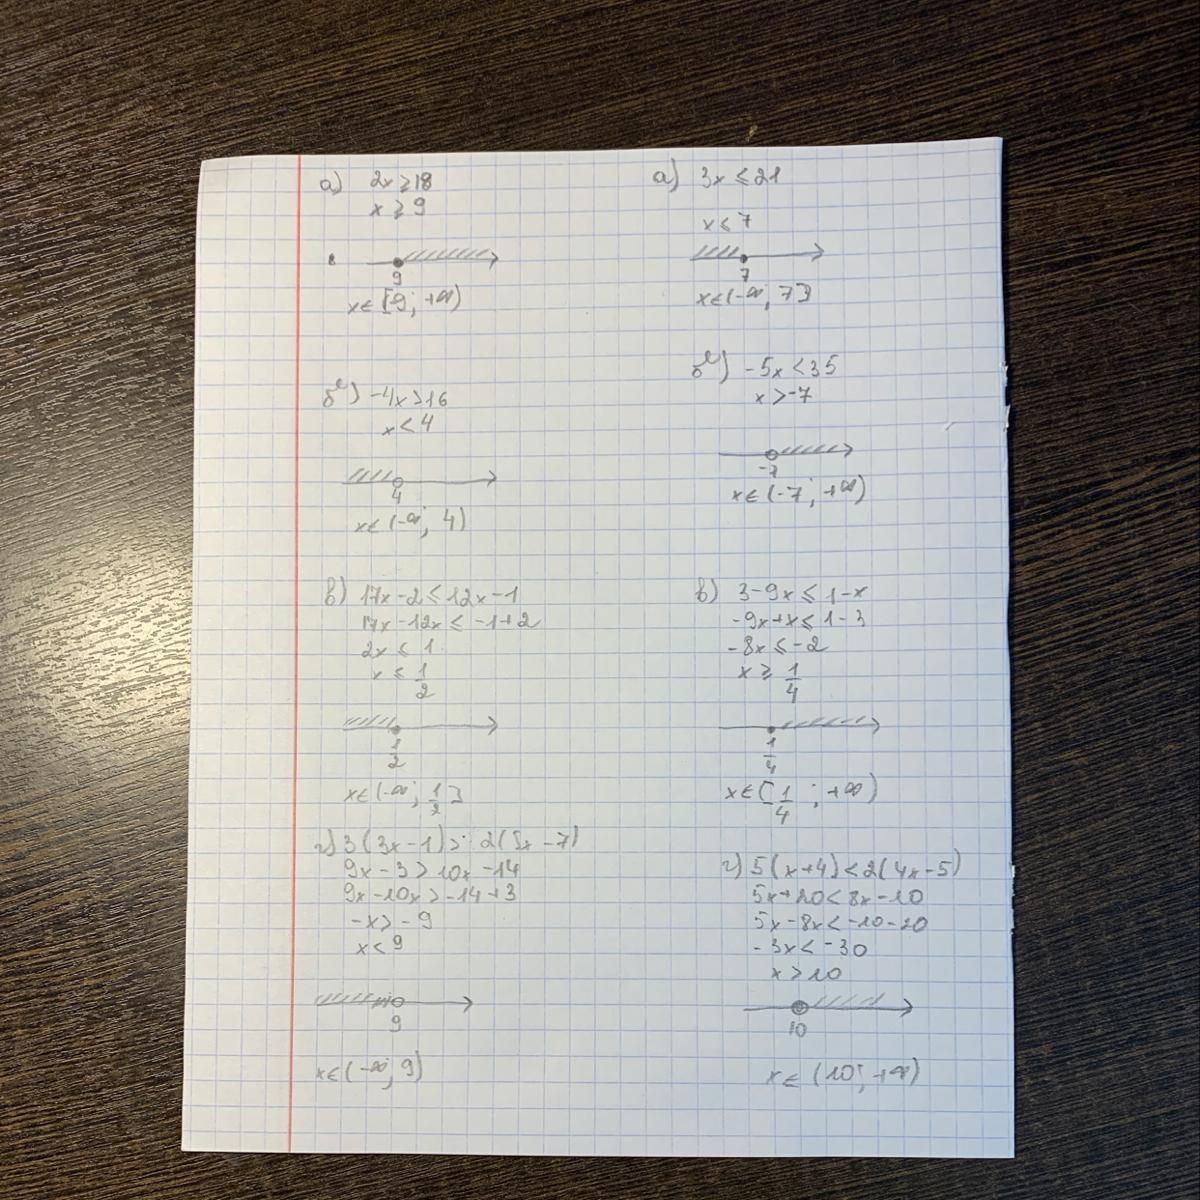 а) 2x ≥ 18
x ≥ 9
9
x ∈ [9; +∞)
б) -4x > 16
x < 4
4
x ∈ (-∞; 4)
в) 17x - 2 ≤ 12x - 1
17x - 12x ≤ -1 + 2
2x ≤ 1
x ≤ 1/2
1/2
x ∈ (-∞; 1/2]
г) 3(3x - 1) > 2(5x - 7)
9x - 3 > 10x - 14
9x - 10x > -14 + 3
-x > -9
x < 9
9
x ∈ (-∞; 9)
а) 3x ≤ 21
x ≤ 7
7
x ∈ (-∞; 7]
б) -5x < 35
x > -7
-7
x ∈ (-7; +∞)
в) 3 - 9x ≤ 1 - x
-9x + x ≤ 1 - 3
-8x ≤ -2
x ≥ 1/4
1/4
x ∈ [1/4; +∞)
г) 5(x + 4) < 2(4x - 5)
5x + 20 < 8x - 10
5x - 8x < -10 - 20
-3x < -30
x > 10
10
x ∈ (10; +∞)